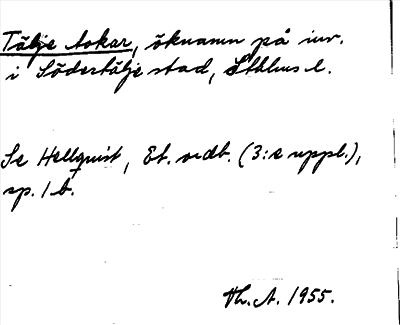 Tälje tokar, öknamn på inv.
i Södertälje stad, Sthlms l.
Se Hellquist, Et. ordb. (3:e uppl.),
sp. 1 b.
Th. A. 1955.